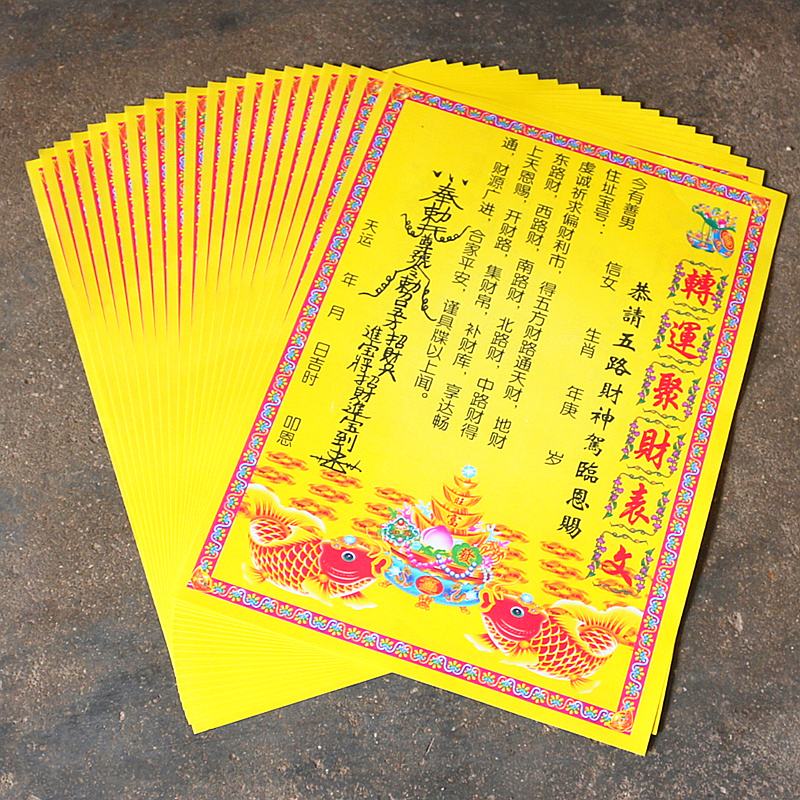 轉運聚財表文
恭請五路財神駕臨恩賜
今有善男 信女 生肖 年庚 岁
住址宝号：
虔诚祈求偏财利市，得五方财路通天财，地财
东路财，西路财，南路财，北路财，中路财得
上天恩赐，开财路，集财帛，补财库，享达畅
通，财源广进，合家平安，谨具牒以上闻。
奉勅
令勅召五方招財
進宝將招財進宝到
天运 年 月 日吉时 叩恩
旺